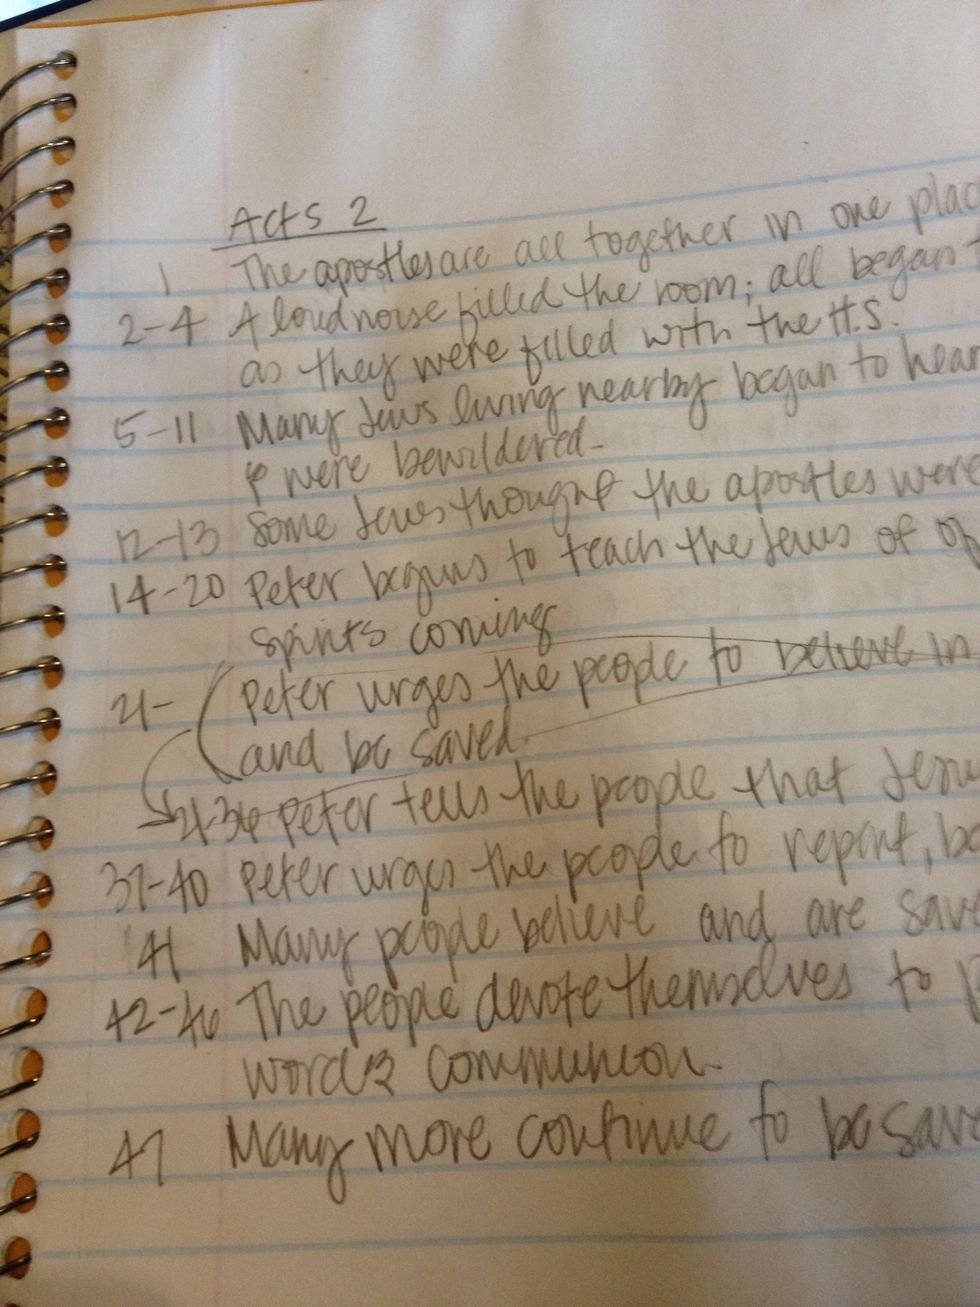 Acts 2
1 The apostles are all together in one plac
2-4 A loud noise filled the room; all began t
as they were filled with the H.S.
5-11 Many Jews living nearby began to hear
& were bewildered.
12-13 Some Jews thought the apostles were
14-20 Peter begins to teach the Jews of
Spirits coming
21- (Peter urges the people to believe in
and be saved.
21-36 Peter tells the people that Jesu
37-40 Peter urges the people to repent, ba
41 Many people believe and are save
42-46 The people devote themselves to p
word & communion.
47 Many more continue to be save